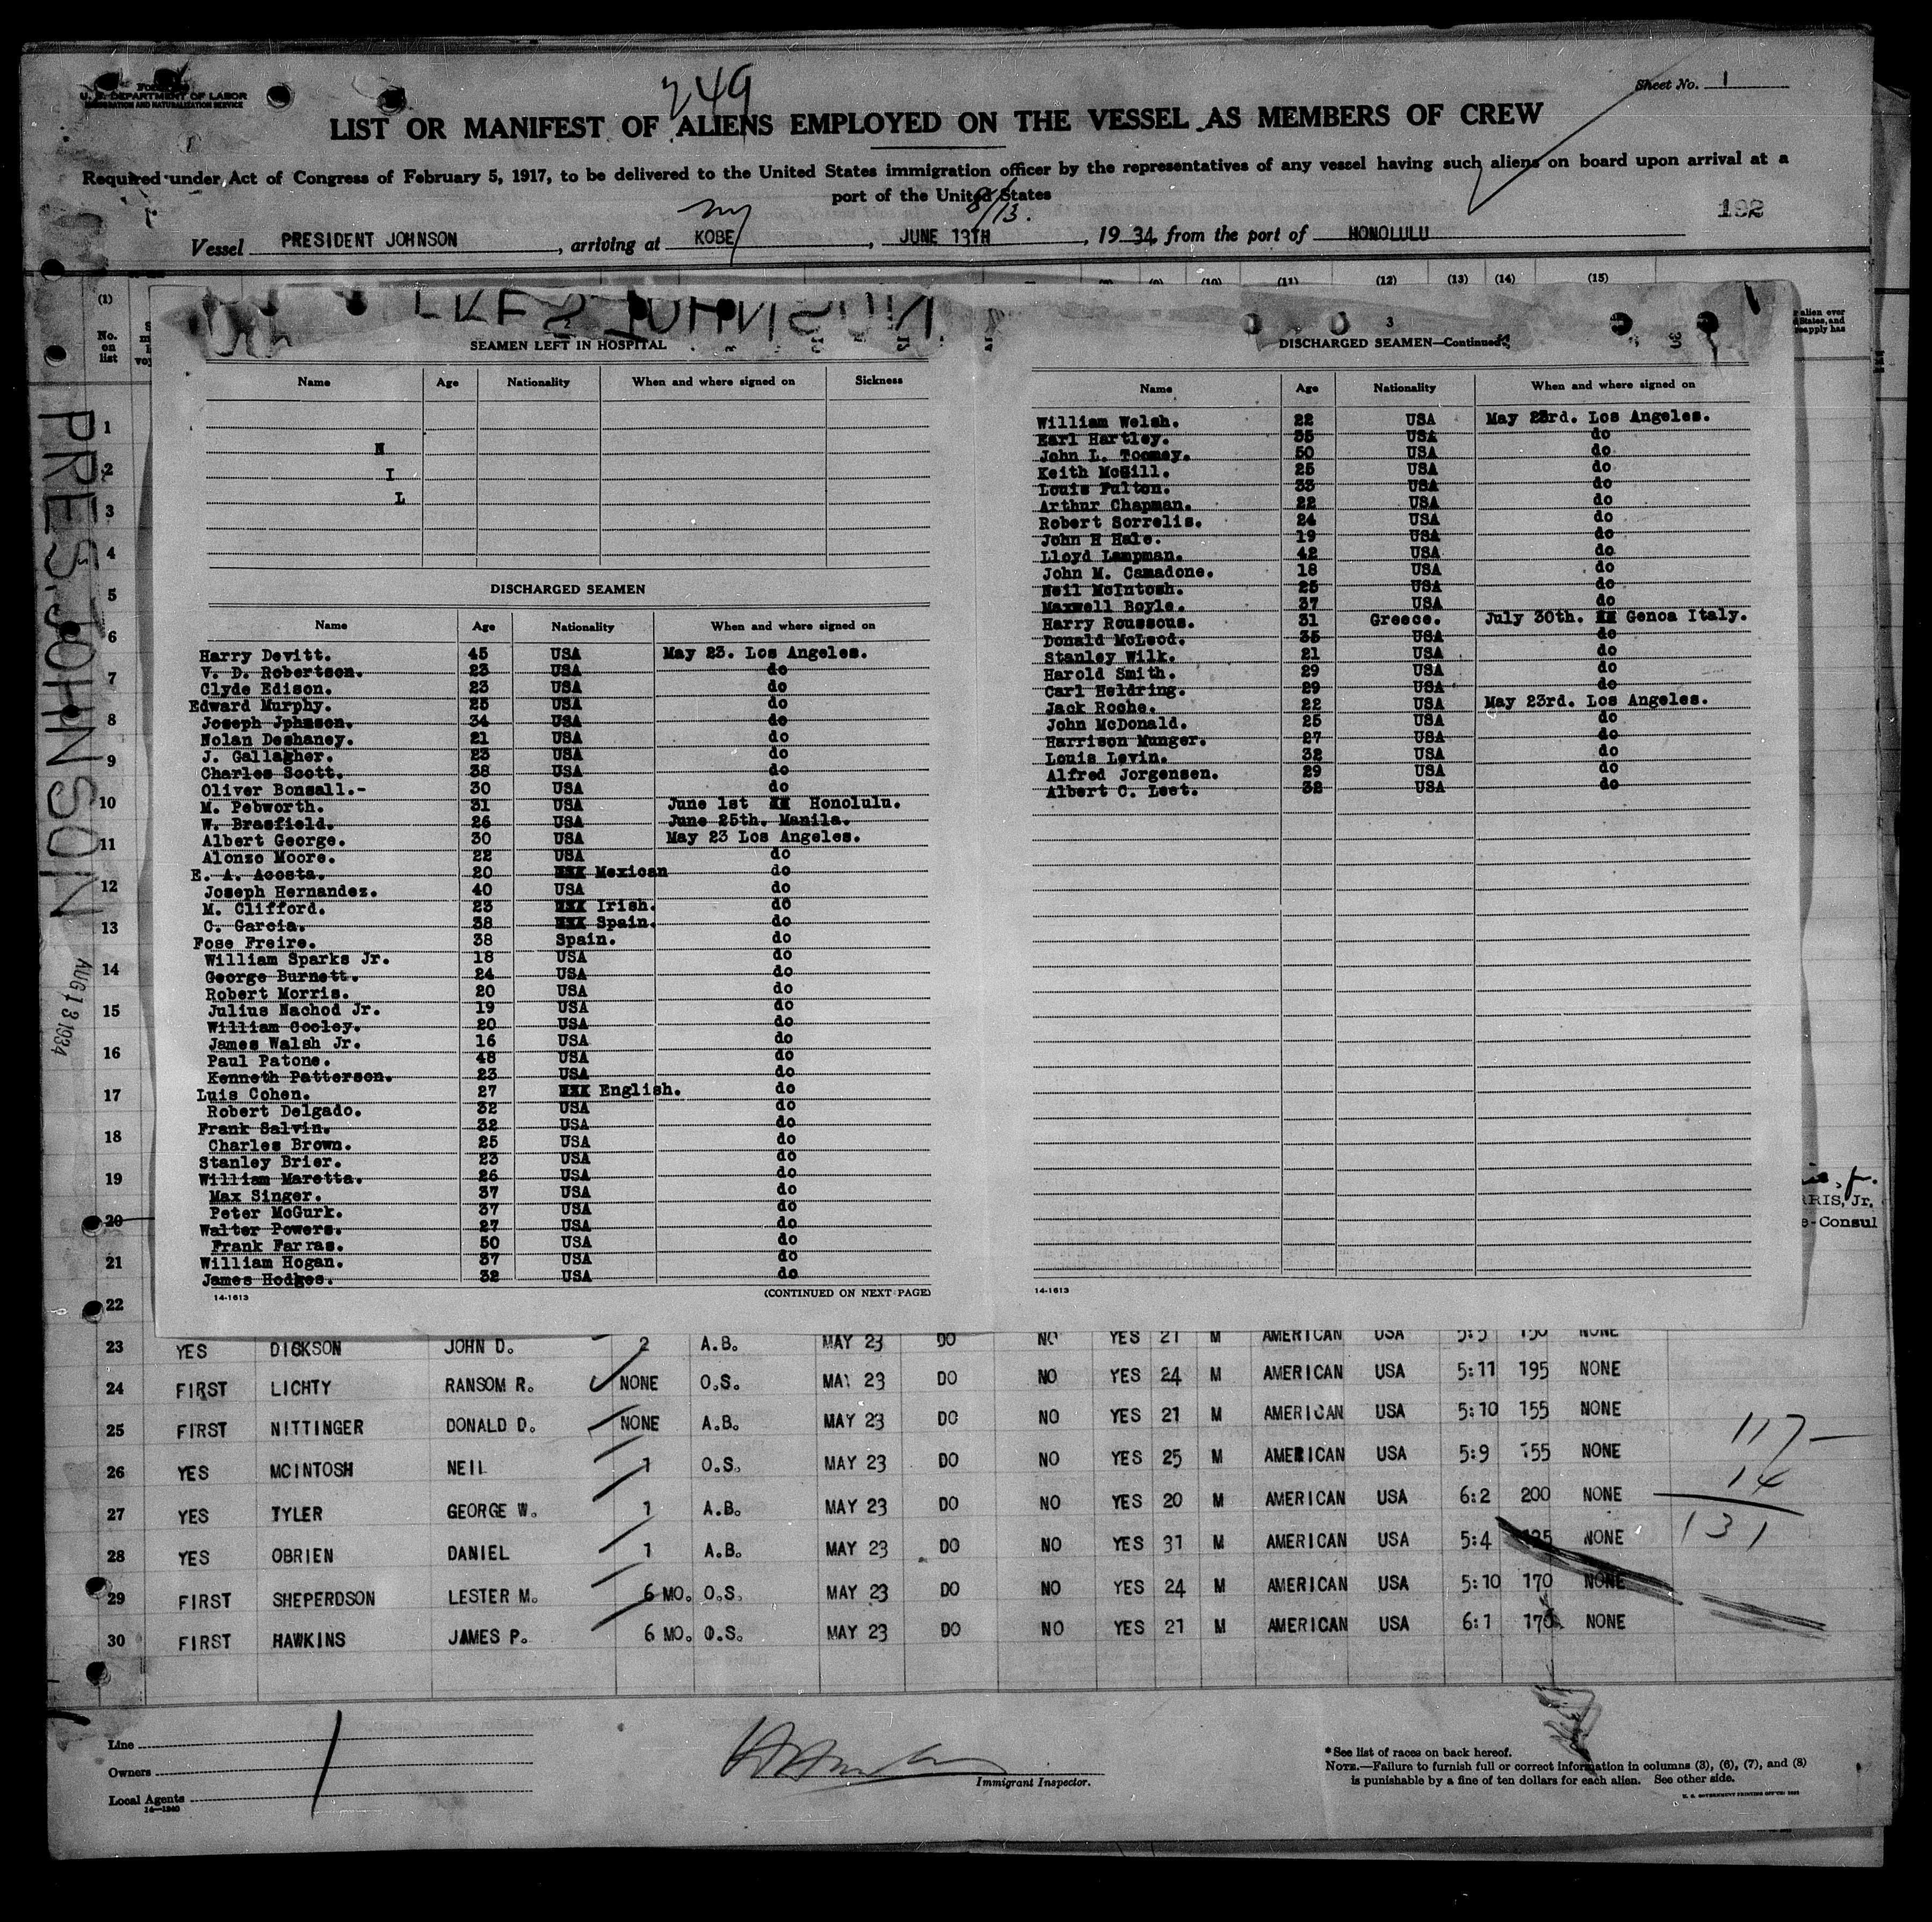 249
Sheet No. 1
U. S. DEPARTMENT OF LABOR
IMMIGRATION AND NATURALIZATION SERVICE
LIST OR MANIFEST OF ALIENS EMPLOYED ON THE VESSEL AS MEMBERS OF CREW
Required under Act of Congress of February 5, 1917, to be delivered to the United States immigration officer by the representatives of any vessel having such aliens on board upon arrival at a
port of the United States
8/13.
192
Vessel PRESIDENT JOHNSON, arriving at KOBE, JUNE 13TH, 1934, from the port of HONOLULU
(1) (11) (12) (13) (14) (15)
No. on list
PRES. JOHNSON
AUG 13 1934
PRES JOHNSON
SEAMEN LEFT IN HOSPITAL
Name Age Nationality When and where signed on Sickness
N
I
L
DISCHARGED SEAMEN
Name Age Nationality When and where signed on
Harry Devitt. 45 USA May 23. Los Angeles.
V. D. Robertson. 23 USA do
Clyde Edison. 23 USA do
Edward Murphy. 25 USA do
Joseph Jphnson. 34 USA do
Nolan Deshaney. 21 USA do
J. Gallagher. 23 USA do
Charles Scott. 38 USA do
Oliver Bonsall.- 30 USA do
M. Pebworth. 31 USA June 1st Honolulu.
W. Brasfield. 26 USA June 25th. Manila.
Albert George. 30 USA May 23 Los Angeles.
Alonzo Moore. 22 USA do
E. A. Acosta. 20 Mexican do
Joseph Hernandez. 40 USA do
M. Clifford. 23 Irish. do
C. Garcia. 38 Spain. do
Fose Freire. 38 Spain. do
William Sparks Jr. 18 USA do
George Burnett. 24 USA do
Robert Morris. 20 USA do
Julius Nachod Jr. 19 USA do
William Cooley. 20 USA do
James Walsh Jr. 16 USA do
Paul Patone. 48 USA do
Kenneth Patterson. 23 USA do
Luis Cohen. 27 English. do
Robert Delgado. 32 USA do
Frank Salvin. 32 USA do
Charles Brown. 25 USA do
Stanley Brier. 23 USA do
William Maretta. 26 USA do
Max Singer. 37 USA do
Peter McGurk. 37 USA do
Walter Powers. 27 USA do
Frank Farras. 50 USA do
William Hogan. 37 USA do
James Hodges. 32 USA do
14-1613 (CONTINUED ON NEXT PAGE)
3
DISCHARGED SEAMEN—Continued
Name Age Nationality When and where signed on
William Welsh. 22 USA May 23rd. Los Angeles.
Earl Hartley. 35 USA do
John L. Toomey. 50 USA do
Keith McGill. 25 USA do
Louis Fulton. 33 USA do
Arthur Chapman. 22 USA do
Robert Sorrelis. 24 USA do
John H Hale. 19 USA do
Lloyd Lampman. 42 USA do
John M. Camadone. 18 USA do
Neil McIntosh. 25 USA do
Maxwell Boyle. 37 USA do
Harry Roussous. 31 Greece. July 30th. Genoa Italy.
Donald McLeod. 35 USA do
Stanley Wilk. 21 USA do
Harold Smith. 29 USA do
Carl Heldring. 29 USA do
Jack Roche. 22 USA May 23rd. Los Angeles.
John McDonald. 25 USA do
Harrison Munger. 27 USA do
Louis Levin. 32 USA do
Alfred Jorgensen. 29 USA do
Albert C. Leet. 32 USA do
14-1613
1
2
3
4
5
6
7
8
9
10
11
12
13
14
15
16
17
18
19
20
21
22
RRIS, Jr.
e-Consul
23 YES DICKSON JOHN D. 2 A.B. MAY 23 DO NO YES 21 M AMERICAN USA 5:5 150 NONE
24 FIRST LICHTY RANSOM R. NONE O.S. MAY 23 DO NO YES 24 M AMERICAN USA 5:11 195 NONE
25 FIRST NITTINGER DONALD D. NONE A.B. MAY 23 DO NO YES 21 M AMERICAN USA 5:10 155 NONE
26 YES MCINTOSH NEIL 1 O.S. MAY 23 DO NO YES 25 M AMERICAN USA 5:9 155 NONE
27 YES TYLER GEORGE W. 1 A.B. MAY 23 DO NO YES 20 M AMERICAN USA 6:2 200 NONE
28 YES OBRIEN DANIEL 1 A.B. MAY 23 DO NO YES 31 M AMERICAN USA 5:4 NONE
29 FIRST SHEPERDSON LESTER M. 6 MO. O.S. MAY 23 DO NO YES 24 M AMERICAN USA 5:10 170 NONE
30 FIRST HAWKINS JAMES P. 6 MO. O.S. MAY 23 DO NO YES 21 M AMERICAN USA 6:1 170 NONE
117
14
131
Line
Owners
Local Agents
14—1240
Immigrant Inspector.
*See list of races on back hereof.
NOTE.—Failure to furnish full or correct information in columns (3), (6), (7), and (8)
is punishable by a fine of ten dollars for each alien. See other side.